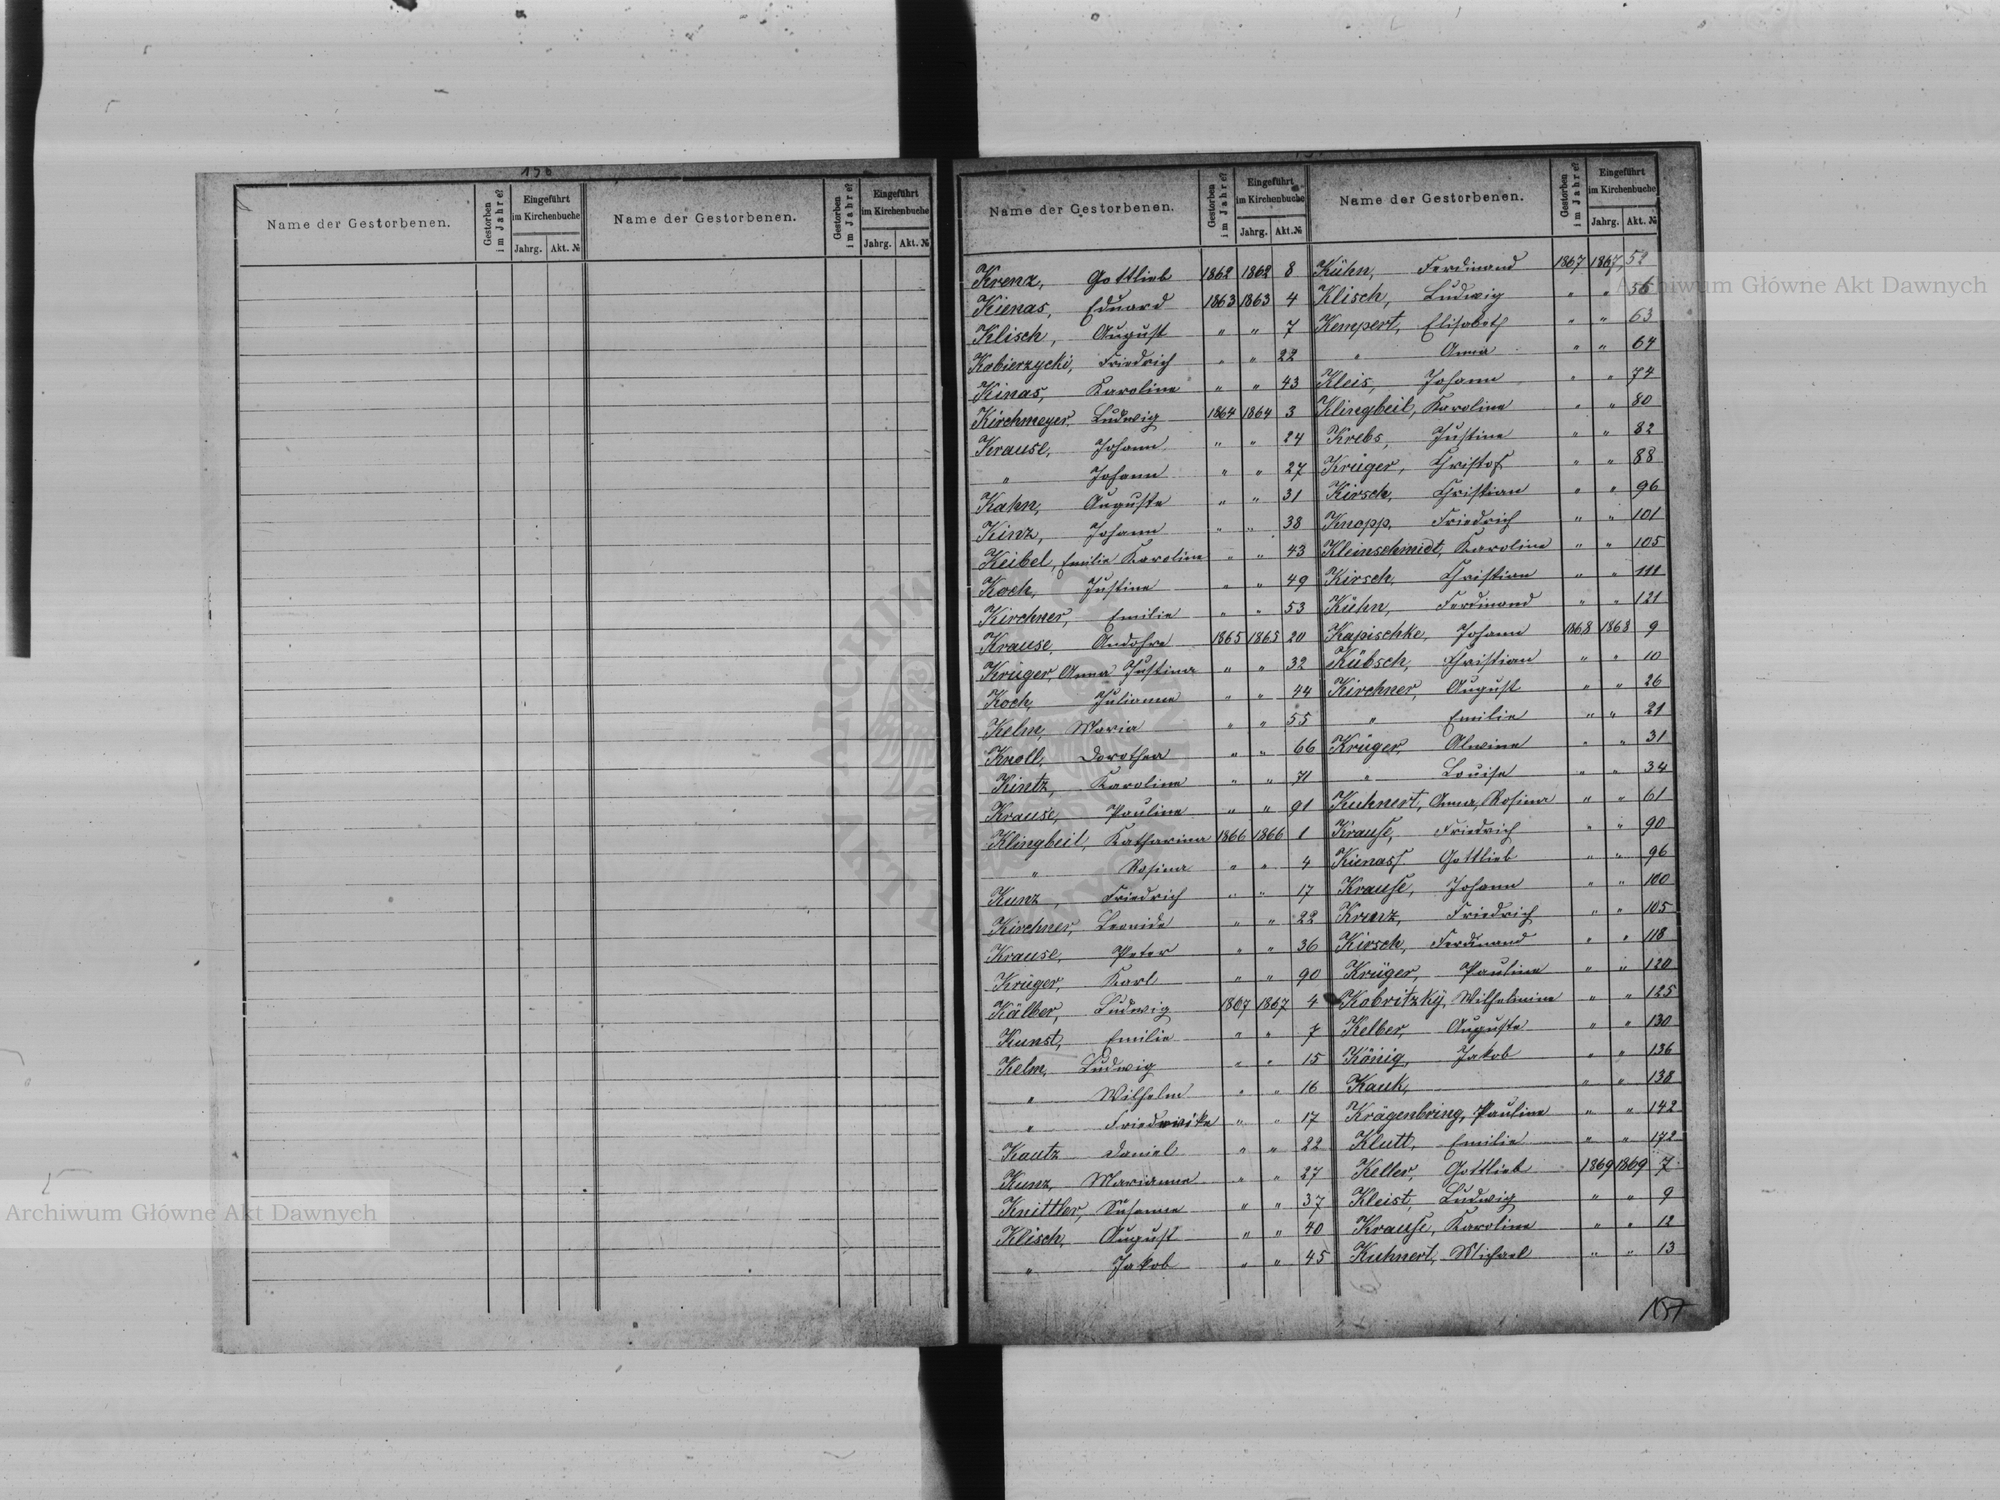 156
Name der Gestorbenen. Gestorben im Jahre? Eingeführt im Kirchenbuche Jahrg. Akt. № Name der Gestorbenen. Gestorben im Jahre? Eingeführt im Kirchenbuche Jahrg. Akt. №
Name der Gestorbenen. Gestorben im Jahre? Eingeführt im Kirchenbuche Jahrg. Akt. №
Krenz, Gottlieb 1862 1862 8
Kienas, Eduard 1863 1863 4
Klisch, August " " 7
Kabierzycki, Friedrich " " 22
Kinas, Karoline " " 43
Kirchmeyer, Ludwig 1864 1864 3
Krause, Johann " " 24
" Johann " " 27
Kahn, Auguste " " 31
Kinz, Johann " " 38
Keibel, Emilie Karoline " " 43
Koch, Justine " " 49
Kirchner, Emilie " " 53
Krause, 1865 1865 20
Krüger, Anna Justina " " 32
Koch, Julianne " " 44
Kelm, Maria " " 55
Knoll, Dorothea " " 66
Kintz, Karoline " " 71
Krause, Pauline " " 91
Klingbeil, Katharina 1866 1866 1
" Rosina " " 4
Kunz, Friedrich " " 17
Kirchner, " " 22
Krause, Peter " " 36
Krüger, Karl " " 90
Kälber, Ludwig 1867 1867 4
Kunst, Emilie " " 7
Kelm, Ludwig " " 15
" Wilhelm " " 16
" Friedericke " " 17
Kautz Daniel " " 22
Kunz, Marianna " " 27
Knittler, Susanne " " 37
Klisch, August " " 40
" Jakob " " 45
Name der Gestorbenen. Gestorben im Jahre? Eingeführt im Kirchenbuche Jahrg. Akt. №
Kühn, Ferdinand 1867 1867 52
Klisch, Ludwig " " 56
Kempert, Elisabeth " " 63
" Anna " " 64
Kleis, Johann " " 74
Klingbeil, Karoline " " 80
Krebs, Justine " " 82
Krüger, Christof " " 88
Kirsch, Christian " " 96
Knopp, Friedrich " " 101
Kleinschmidt, Karoline " " 105
Kirsch, Christian " " 111
Kühn, Ferdinand " " 121
Kapischke, Johann 1868 1868 9
Kübsch, Christian " " 10
Kirchner, August " " 26
" Emilie " " 21
Krüger, Alwine " " 31
" Louise " " 34
Kuhnert, Anna, Rosina " " 61
Krause, Friedrich " " 90
Kienass Gottlieb " " 96
Krause, Johann " " 100
Krenz, Friedrich " " 105
Kirsch, Ferdinand " " 118
Krüger, Pauline " " 120
Kobritzky, Wilhelmine " " 125
Kelber, Auguste " " 130
König, Jakob " " 136
Kauk, " " 138
Krägenbring, Pauline " " 142
Klutt, Emilie " " 172
Keller, Gottlieb 1869 1869 7
Kleist, Ludwig " " 9
Krause, Karoline " " 12
Kuhnert, Michael " " 13
157
Archiwum Główne Akt Dawnych
Archiwum Główne Akt Dawnych